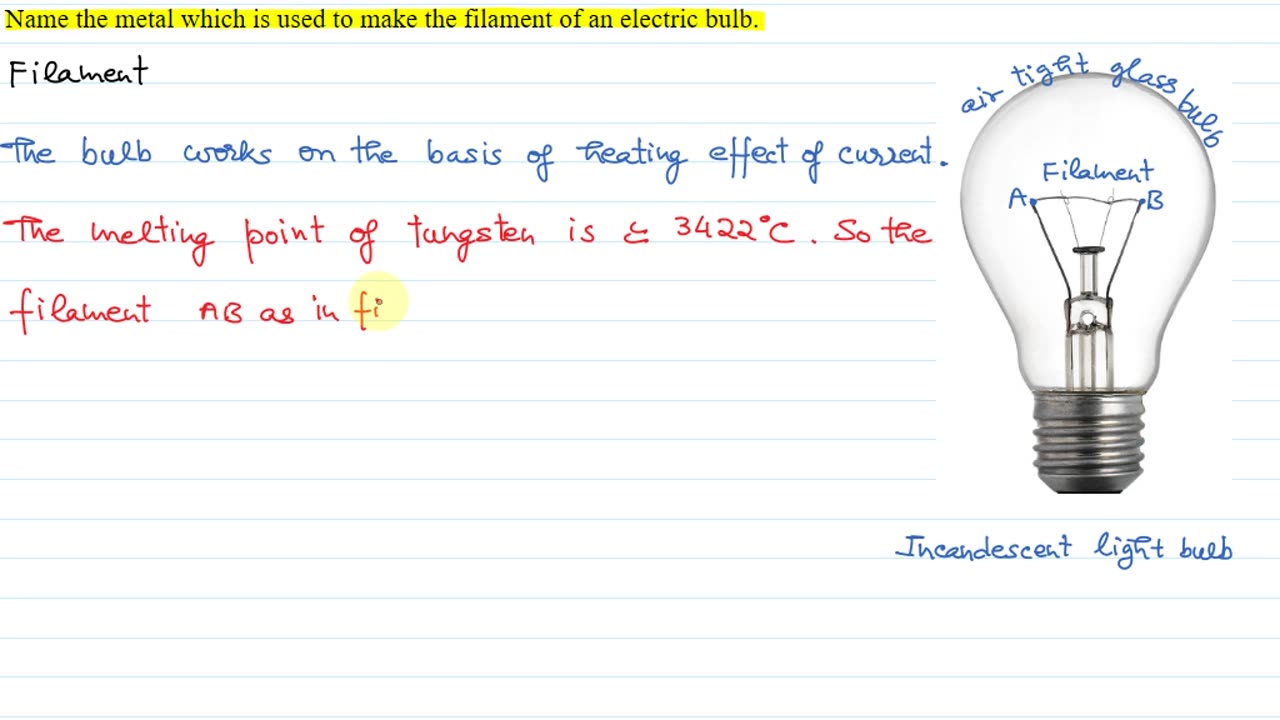 Name the metal which is used to make the filament of an electric bulb.
Filament
The bulb works on the basis of heating effect of current.
The melting point of tungsten is ≤ 3422°C. So the
filament AB as in fi
air tight glass bulb
Filament
A B
Incandescent light bulb